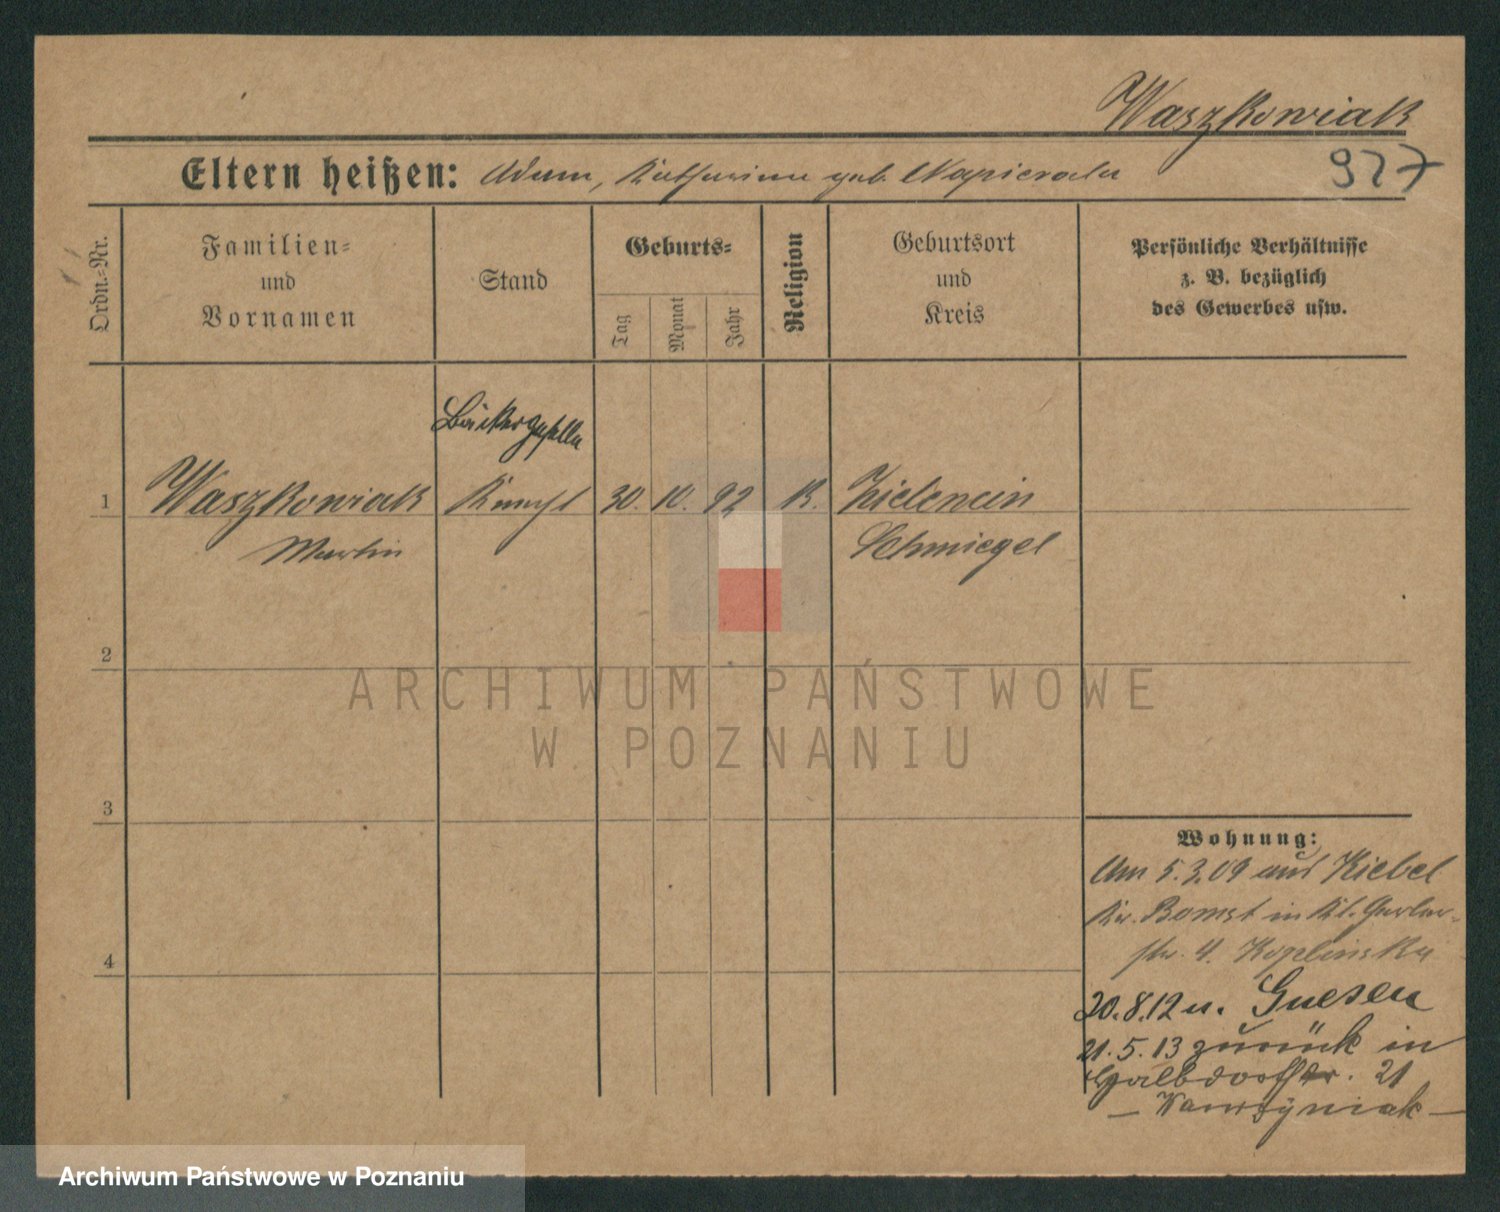 Waszkowiak
Eltern heißen: Adam, Katharina geb. Napierala
977
Ordn.-Nr.
Familien-
und
Vornamen
Stand
Geburts-
Tag
Monat
Jahr
Religion
Geburtsort
und
Kreis
Persönliche Verhältnisse
z. B. bezüglich
des Gewerbes usw.
Bäckergeselle
1 Waszkowiak Knecht 30. 10. 92 K.
Martin Schmiegel
2
3
4
Wohnung:
Am 5.3.09 aus Kiebel
Kr. Bomst in Kl. Gerber-
str. 4.
20.8.12 n. Gnesen
21.5.13 zurück in
21
— Wawrzyniak —
ARCHIWUM PAŃSTWOWE
W POZNANIU
Archiwum Państwowe w Poznaniu